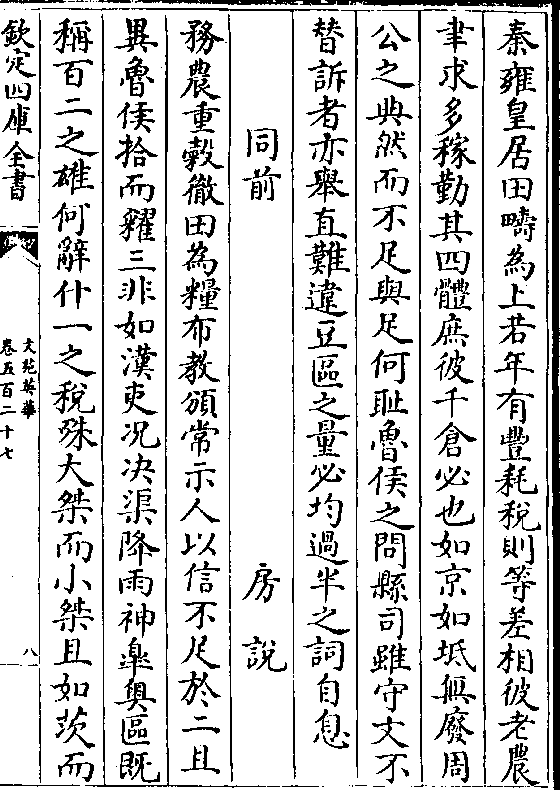 秦雍皇居田疇為上若年有豐耗稅則等差相彼老農
聿求多稼勤其四體庶彼千倉必也如京如坻無廢周
公之典然而不足與足何恥魯侯之問縣司雖守文不
替訴者亦舉直難違豆區之量必均過半之詞自息
同前 房說
務農重穀徹田為糧布教頒常示人以信不足於二且
異魯侯拾而糴三非如漢吏況决渠降雨神臯奥區既
稱百二之雄何辭什一之稅殊大桀而小桀且如茨而
欽定四庫全書
文苑英華
卷五百二十七
八